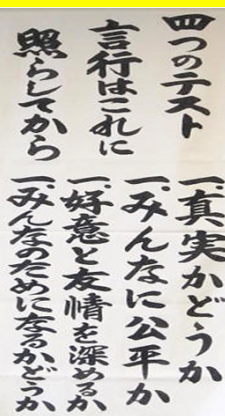 四つのテスト
言行はこれに
照らしてから
一.真実かどうか
一.みんなに公平か
一.好意と友情を深めるか
一.みんなのためになるかどうか